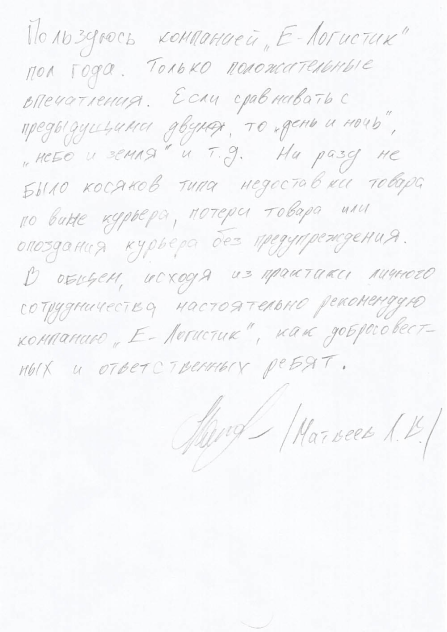 Пользуюсь компанией „Е-Логистик"
пол года. Только положительные
впечатления. Если сравнивать с
предыдущими двумя, то „день и ночь",
„небо и земля" и т.д. Ни разу не
было косяков типа недоставки товара
по вине курьера, потери товара или
опоздания курьера без предупреждения.
В общем, исходя из практики личного
сотрудничества, настоятельно рекомендую
компанию „Е-Логистик", как добросовест-
ных и ответственных ребят.
/Матвеев Л.В./